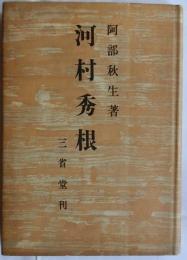 阿部秋生著
河村秀根
三省堂刊